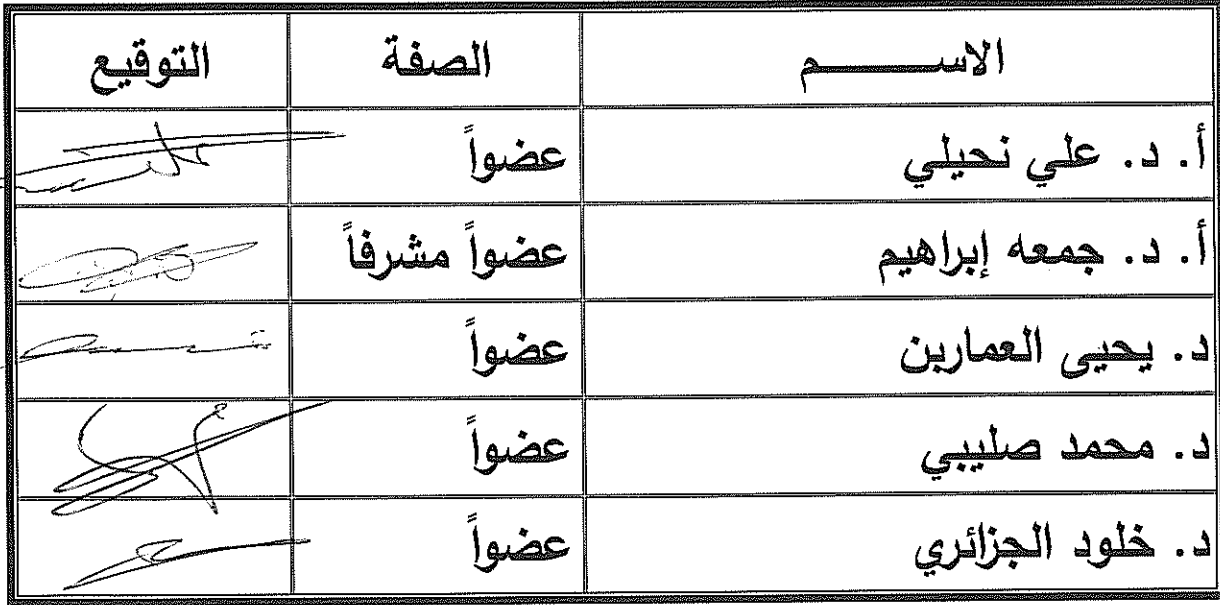 الاســــــــم الصفة التوقيع
أ. د. علي نحيلي عضواً
أ. د. جمعه إبراهيم عضواً مشرفاً
د. يحيى العمارين عضواً
د. محمد صليبي عضواً
د. خلود الجزائري عضواً